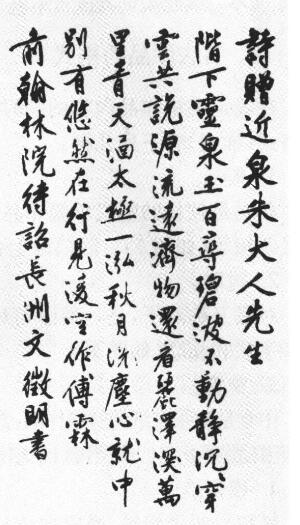 詩贈近泉朱大人先生
階下靈泉玉百尋碧波不動靜沉〻穿
雲共說源流遠濟物還看麗澤深萬
里青天涵太極一泓秋月洗塵心就中
別有悠然在行見空作傅霖
前翰林院待詔長洲文徵明書